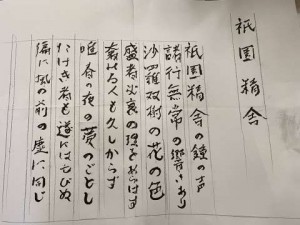 祇園精舎
祇園精舎の鐘の声
諸行無常の響きあり
沙羅双樹の花の色
盛者必衰の理をあらはす
奢れる人も久しからず
唯春の夜の夢のごとし
たけき者も遂にはほろびぬ
偏に風の前の塵に同じ